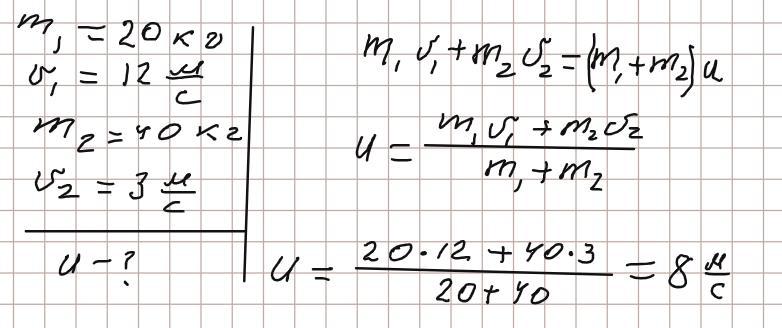 m₁ = 20 кг
v₁ = 12 м/с
m₂ = 40 кг
v₂ = 3 м/с
u - ?
m₁v₁ + m₂v₂ = (m₁ + m₂)u
u = (m₁v₁ + m₂v₂)/(m₁ + m₂)
u = (20·12 + 40·3)/(20 + 40) = 8 м/с